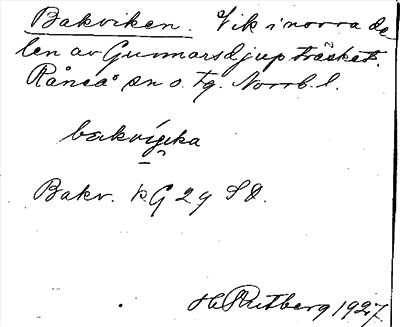 Bakviken. Vik i norra de
len av Gunnarsdjupträsket.
Råneå sn o. tg. Norrb. l.
bakvīka
Bakv. K G 29 SO.
H Rutberg 1927.